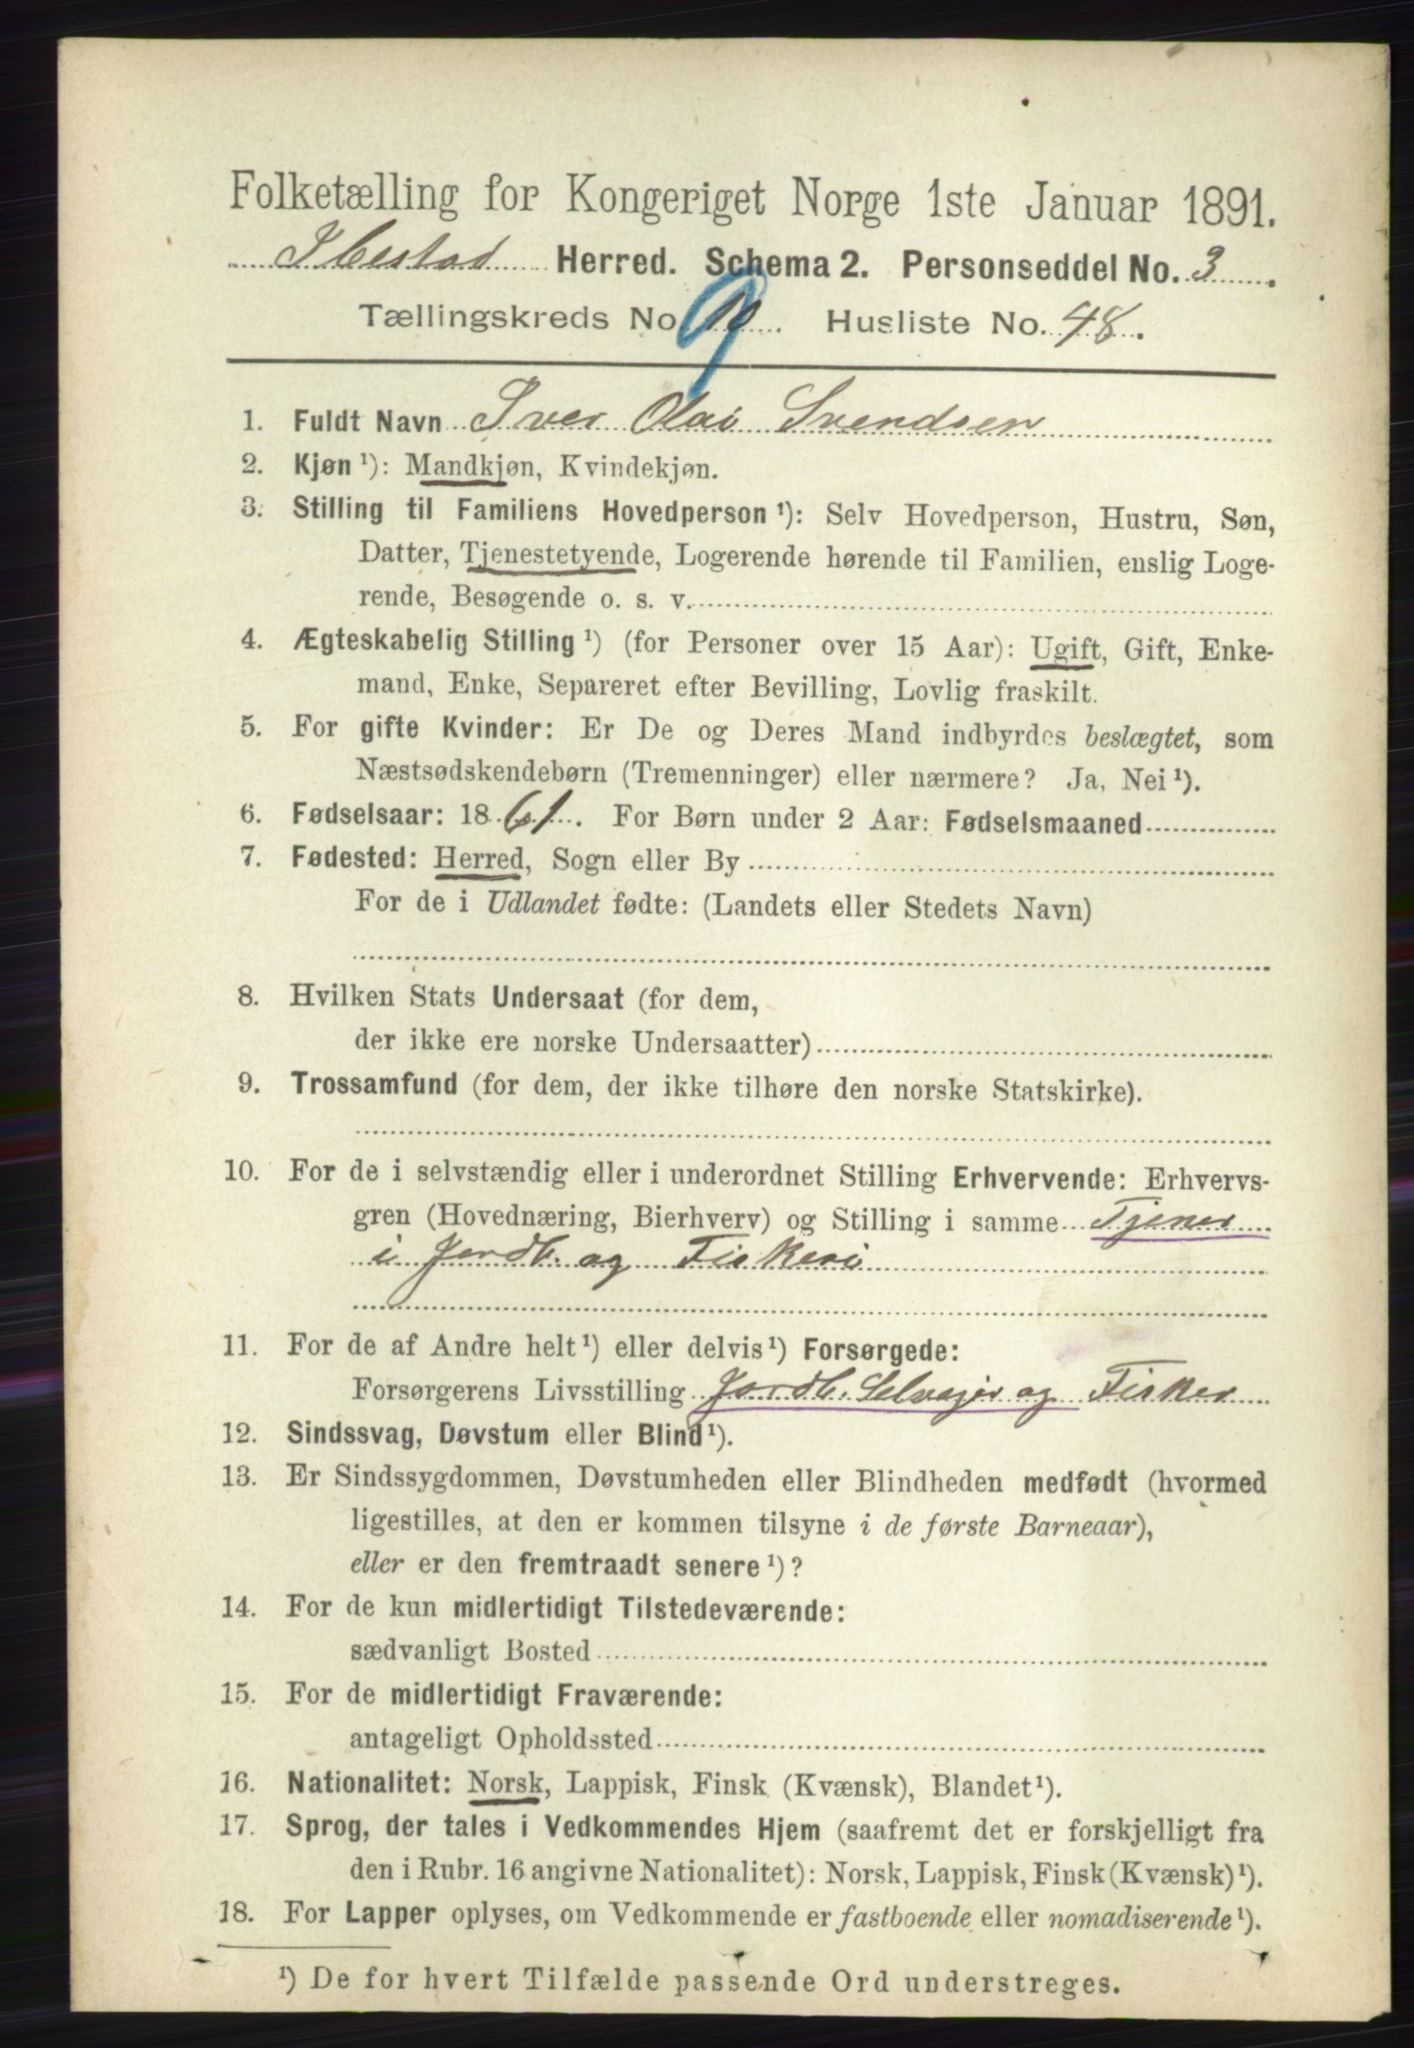 Folketælling for Kongeriget Norge 1ste Januar 1891.
Ibestad Herred. Schema 2. Personseddel No. 3.
Tællingskreds No. 10 9. Husliste No. 48.
1. Fuldt Navn Iver Olai Svendsen
2. Kjøn ¹): Mandkjøn, Kvindekjøn.
3. Stilling til Familiens Hovedperson ¹): Selv Hovedperson, Hustru, Søn,
Datter, Tjenestetyende, Logerende hørende til Familien, enslig Loge-
rende, Besøgende o. s. v.
4. Ægteskabelig Stilling ¹) (for Personer over 15 Aar): Ugift, Gift, Enke-
mand, Enke, Separeret efter Bevilling, Lovlig fraskilt.
5. For gifte Kvinder: Er De og Deres Mand indbyrdes beslægtet, som
Næstsødskendebørn (Tremenninger) eller nærmere? Ja, Nei ¹).
6. Fødselsaar: 1861. For Børn under 2 Aar: Fødselsmaaned
7. Fødested: Herred, Sogn eller By
For de i Udlandet fødte: (Landets eller Stedets Navn)
8. Hvilken Stats Undersaat (for dem,
der ikke ere norske Undersaatter)
9. Trossamfund (for dem, der ikke tilhøre den norske Statskirke).
10. For de i selvstændig eller i underordnet Stilling Erhvervende: Erhvervs-
gren (Hovednæring, Bierhverv) og Stilling i samme Tjener
i Jordb. og Fiskeri
11. For de af Andre helt ¹) eller delvis ¹) Forsørgede:
Forsørgerens Livsstilling Jordb. Selveier og Fisker
12. Sindssvag, Døvstum eller Blind ¹).
13. Er Sindssygdommen, Døvstumheden eller Blindheden medfødt (hvormed
ligestilles, at den er kommen tilsyne i de første Barneaar),
eller er den fremtraadt senere ¹)?
14. For de kun midlertidigt Tilstedeværende:
sædvanligt Bosted
15. For de midlertidigt Fraværende:
antageligt Opholdssted
16. Nationalitet: Norsk, Lappisk, Finsk (Kvænsk), Blandet ¹).
17. Sprog, der tales i Vedkommendes Hjem (saafremt det er forskjelligt fra
den i Rubr. 16 angivne Nationalitet): Norsk, Lappisk, Finsk (Kvænsk) ¹).
18. For Lapper oplyses, om Vedkommende er fastboende eller nomadiserende ¹).
¹) De for hvert Tilfælde passende Ord understreges.